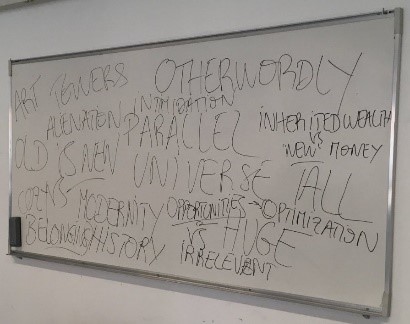 ART TOWERS OTHERWORDLY
ALIENATION INTIMIDATION
PARALLEL INHERITED WEALTH
VS
OLD IS NEW "NEW" MONEY
UNIVERSE TALL
MODERNITY OPPORTUNITIES → OPTIMIZATION
VS HUGE
BELONGING HISTORY IRRELEVENT